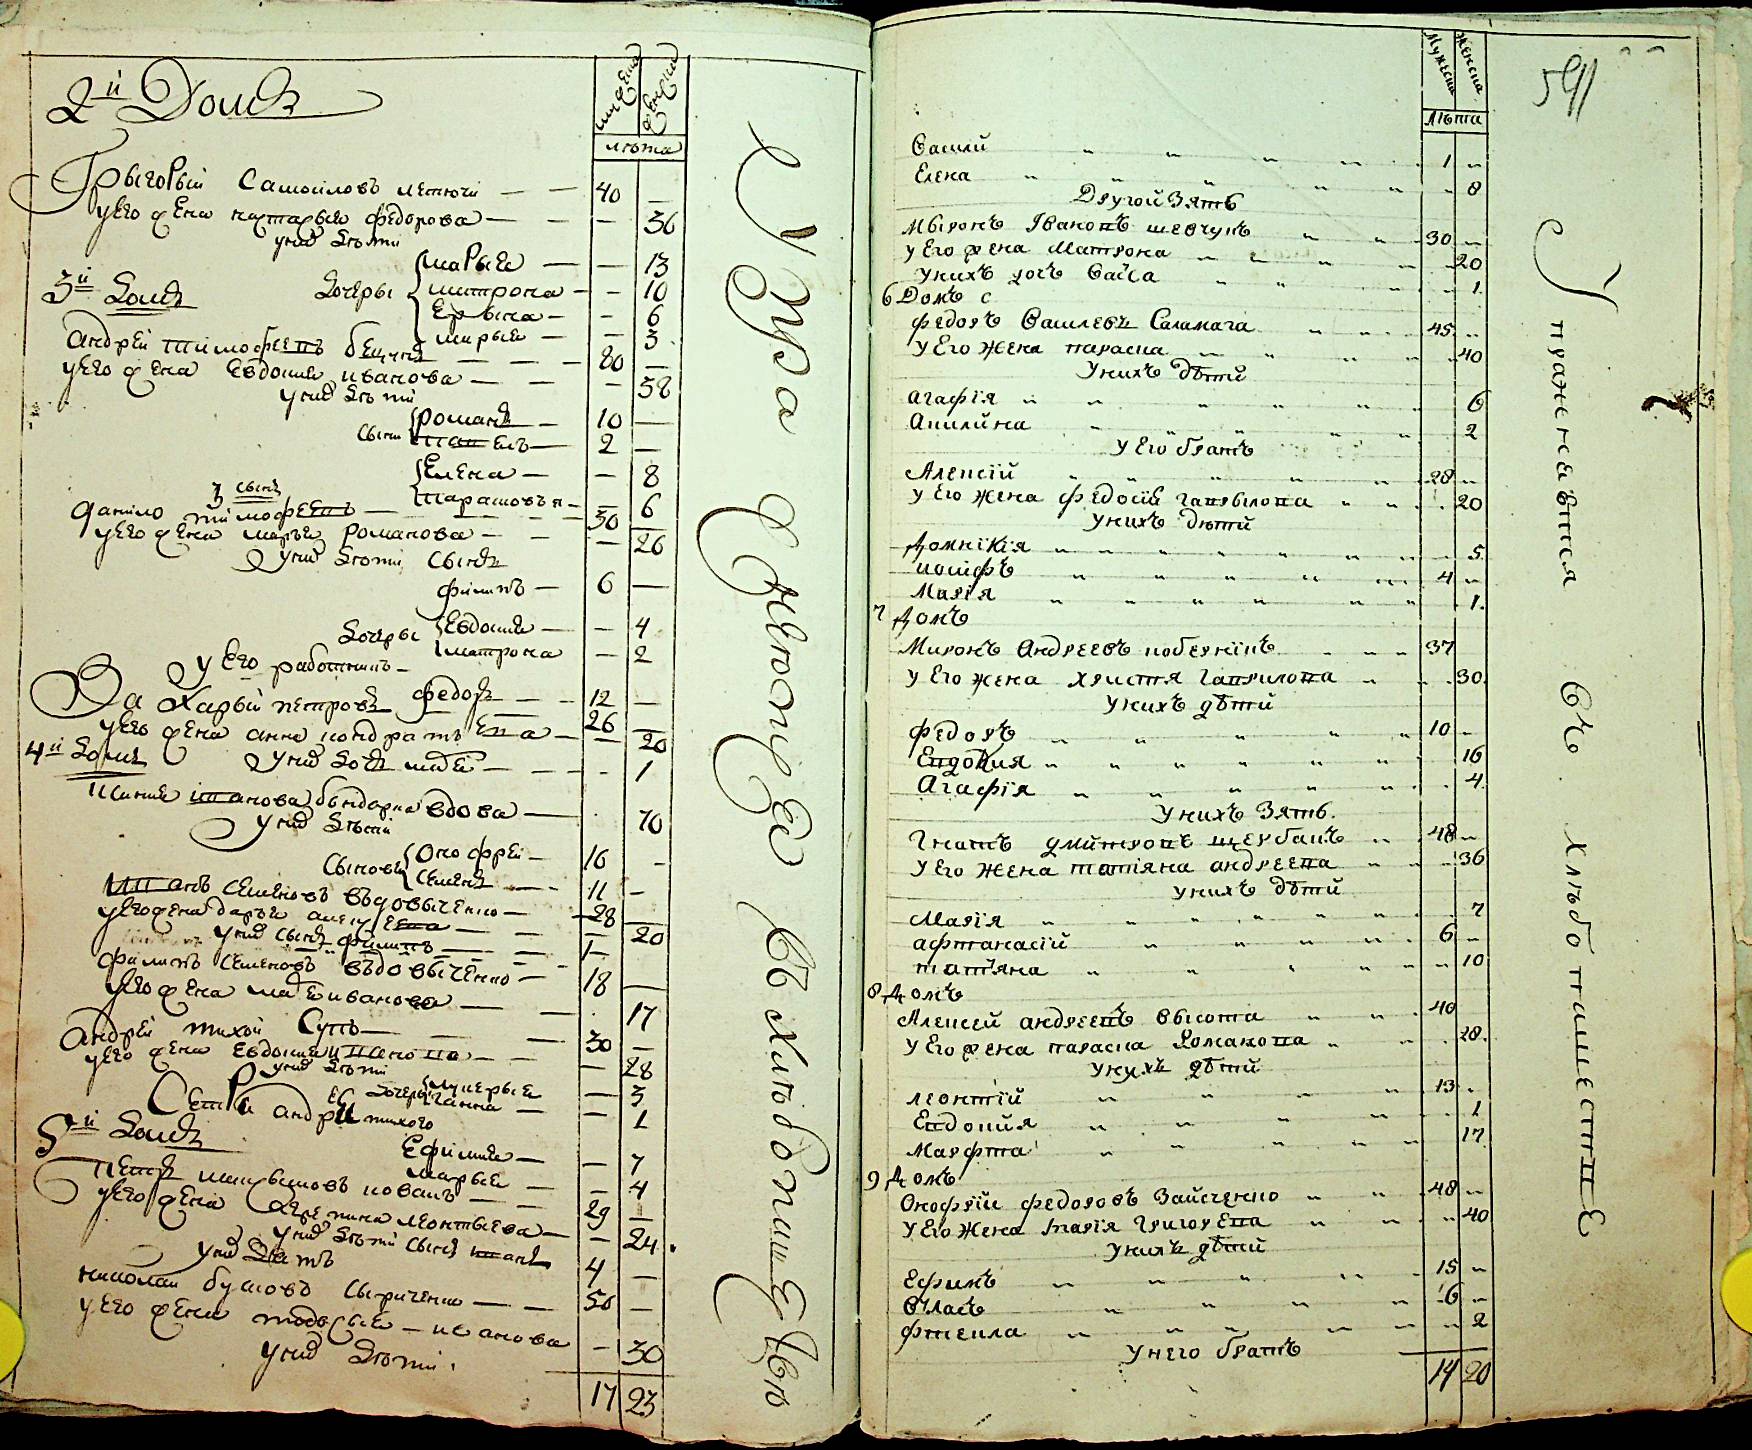 2й Домъ
мужеска
женска
лѣта
Грыгорый Самоиловъ летючи — — 40 —
у его жена настасыя федорова — — — 36
у нихъ дѣти
марыя — — 13
дочеры матрона — — 10
Ерына — — 6
марыя — — 3
3й домъ
андрей тимофеевъ — — 80 —
у его жена Евдокия иванова — — — 38
у нихъ дѣти
романъ — 10 —
сыны павелъ — 2 —
Елена — — 8
6
3 сынъ
данило тимофеевъ — — 30 —
у его жена марыя романова — — — 26
у нихъ дѣти сынъ
филипъ — 6 —
дочеры Евдокия — — 4
матрона — 2
у Его работникъ —
федоръ — — 12 —
Захарый петровъ 26 —
у его жена анна кондратьева — — 20
4й домъ
у нихъ дочь — — - 1
иванова бондарка вдова — 70
у нихъ дѣти
Сыновя Онофрей — 16 -
Семенъ — 11 -
иванъ Семеновъ вдовыченко — 28 —
у его жена дарыя алексеева — — 20
у нихъ сынъ филипъ — — 1 —
филипъ Семеновъ вдовыченко — 18 —
у его жена иванова — 17
андрей тихой Супъ — — 30 —
у его жена Евдокия иванова — — — 28
у нихъ дѣти
дочеры лукерыя — 3
ганна — — 1
Сестры андрея тихого
5й домъ
Ефимия — — 7
марыя — — 4
петръ ковалъ — 29 —
у его жена Катерина леонтыева — — 24
у нихъ дѣти сынъ иванъ 4 —
у нихъ зять
николай — — 50 —
у его жена иванова — 30
у нихъ дѣти.
17 23
Упражняюцея въ хлѣбопашествѣ
мужеска
женска
лѣта
591
Василй 1 —
Елена 8
Другой зять
Мыронъ Івановъ шевчукъ 30 —
у Его жена Матрона 20
у нихъ дочь Васса 1
6 Домъ
федоръ Василевъ Саламаха 45 —
у Его жена параска 40
у нихъ дѣти
агафїя 6
Акилина 2
у Его братъ
Алексїй 28 —
у Его жена федосїя гаврылова 20
у нихъ дѣти
домнїкїя 5
иосифъ 4 —
Марїя 1.
7 домъ
Миронъ Андреевъ 37
у Его жена христя гаврилова 30.
у нихъ дѣти
федоръ 10 —
Евдокия 16
Агафїя 4.
у нихъ зять.
Гнатъ дмитровъ щербакъ 48 —
у Его жена татїяна андреева 36
у нихъ дѣти
Марїя 7
афтанасїй 6 —
татїяна 10
8 домъ
Алексей андреевъ Высота 40
у Его жена параска Романова 28.
у нихъ дѣти
леонтїй 13 -
Евдокия 1
Марфта 17.
9 домъ
Онофрїй федоровъ зайченко 48 —
у Его жена Марїя григорева 40
у нихъ дѣтй
Ефимъ 15 —
Власъ 6 —
фтекла 2
у него братъ
14 20
Упражняються въ хлѣбопашествѣ